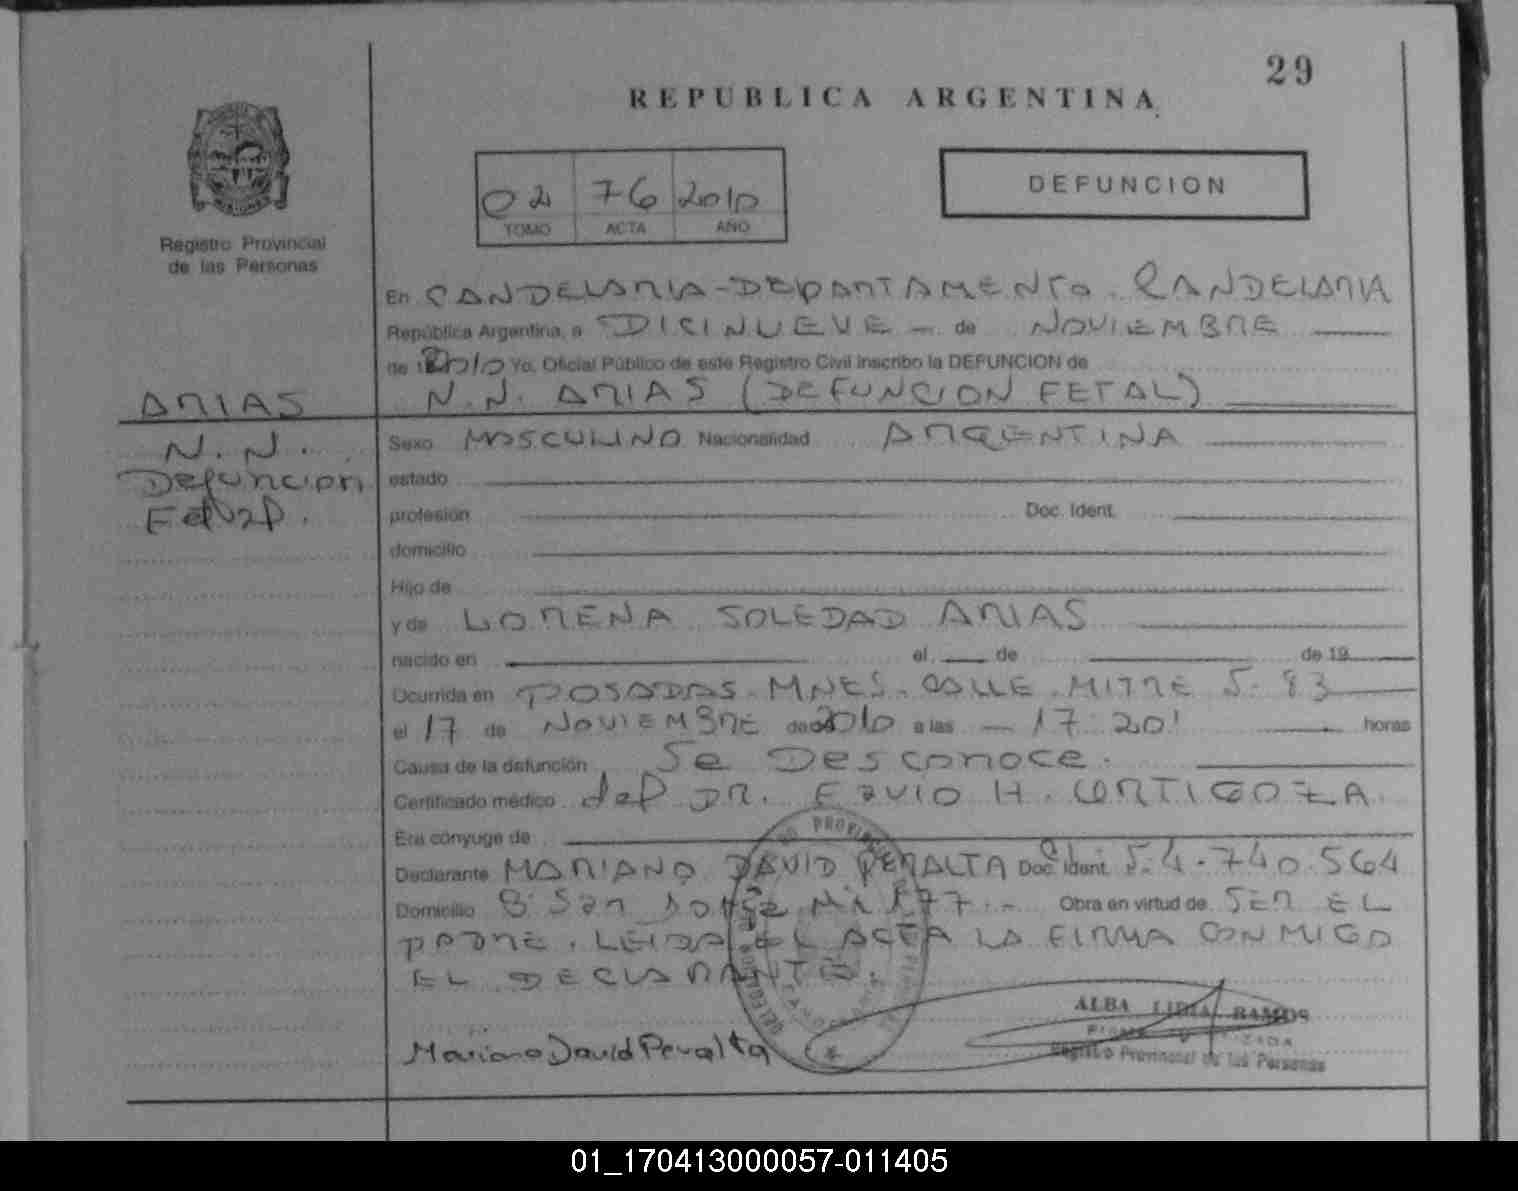 29
REPUBLICA ARGENTINA
Registro Provincial
de las Personas
02 76 2010
TOMO ACTA AÑO
DEFUNCION
En CANDELARIA - DEPARTAMENTO. CANDELARIA
República Argentina, a DICINUEVE de NOVIEMBRE
de 2010 Yo, Oficial Público de este Registro Civil inscribo la DEFUNCION de
N.N. ARIAS (DEFUNCION FETAL)
ARIAS
N.N.
Defuncion
Fetal.
Sexo MASCULINO Nacionalidad ARGENTINA
estado
profesión Doc. Ident.
domicilio
Hijo de
y de LORENA SOLEDAD ARIAS
nacido en el de de 19
Ocurrida en POSADAS. MNES. CALLE. MITRE 83
el 17 de NOVIEMBRE de 2010 a las 17:20 horas
Causa de la defunción Se Desconoce.
Certificado médico del DR. H.
Era cónyuge de
Declarante MARIANO DAVID PERALTA Doc. Ident. 740.564
Domicilio San 177 Obra en virtud de SER EL
PADRE. LEIDA EL ACTA LA FIRMA CONMIGO
EL DECLARANTE.
Mariano David Peralta
ALBA LIDIA RAMOS
Registro Provincial de las Personas
01_170413000057-011405